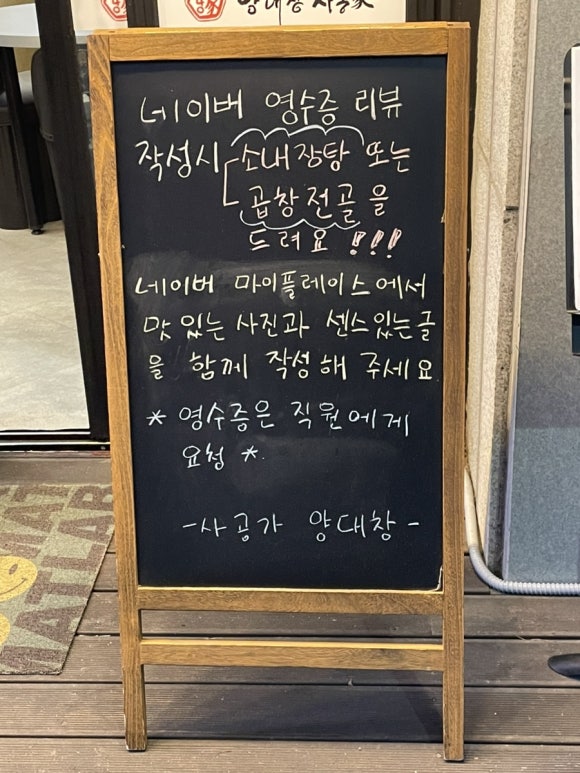 양대창 사공家
네이버 영수증 리뷰
작성시 소내장탕 또는
곱창전골을
드려요 !!!
네이버 마이플레이스에서
맛있는 사진과 센스있는 글
을 함께 작성해 주세요
* 영수증은 직원에게
요청 *.
-사공가 양대창-
MATLAB